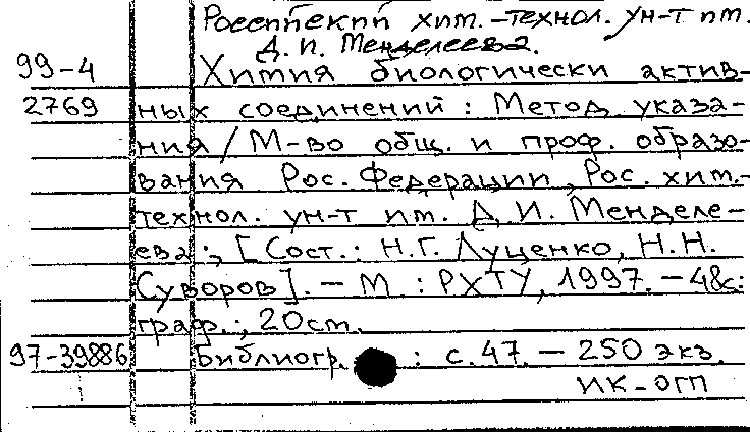 Российский хим.-технол. ун-т им.
Д. И. Менделеева.
99-4 Химия биологически актив-
2769 ных соединений : Метод. указа-
ния / М-во общ. и проф. образо-
вания Рос. Федерации, Рос. хим.-
технол. ун-т им. Д. И. Менделе-
ева ; [Сост.: Н.Г. Луценко, Н.Н.
Суворов]. - М. : РХТУ, 1997. - 48с:
граф. ; 20см.
97-39886 Библиогр. : с. 47. - 250 экз.
ИК-ОГП